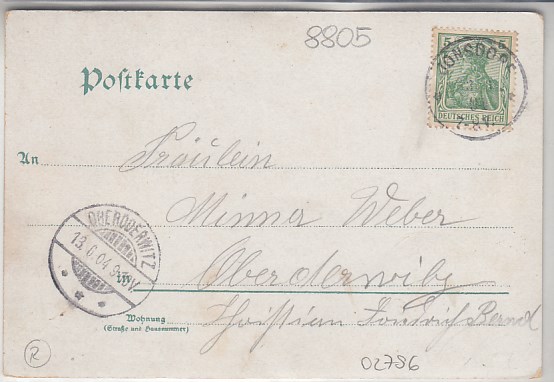 8805
5 5
JONSDORF
DEUTSCHES REICH
Postkarte
An Fräulein
Minna Weber
OBERODERWITZ
13.6.04
in Oberoderwitz
Wohnung
(Straße und Hausnummer)
R
02786